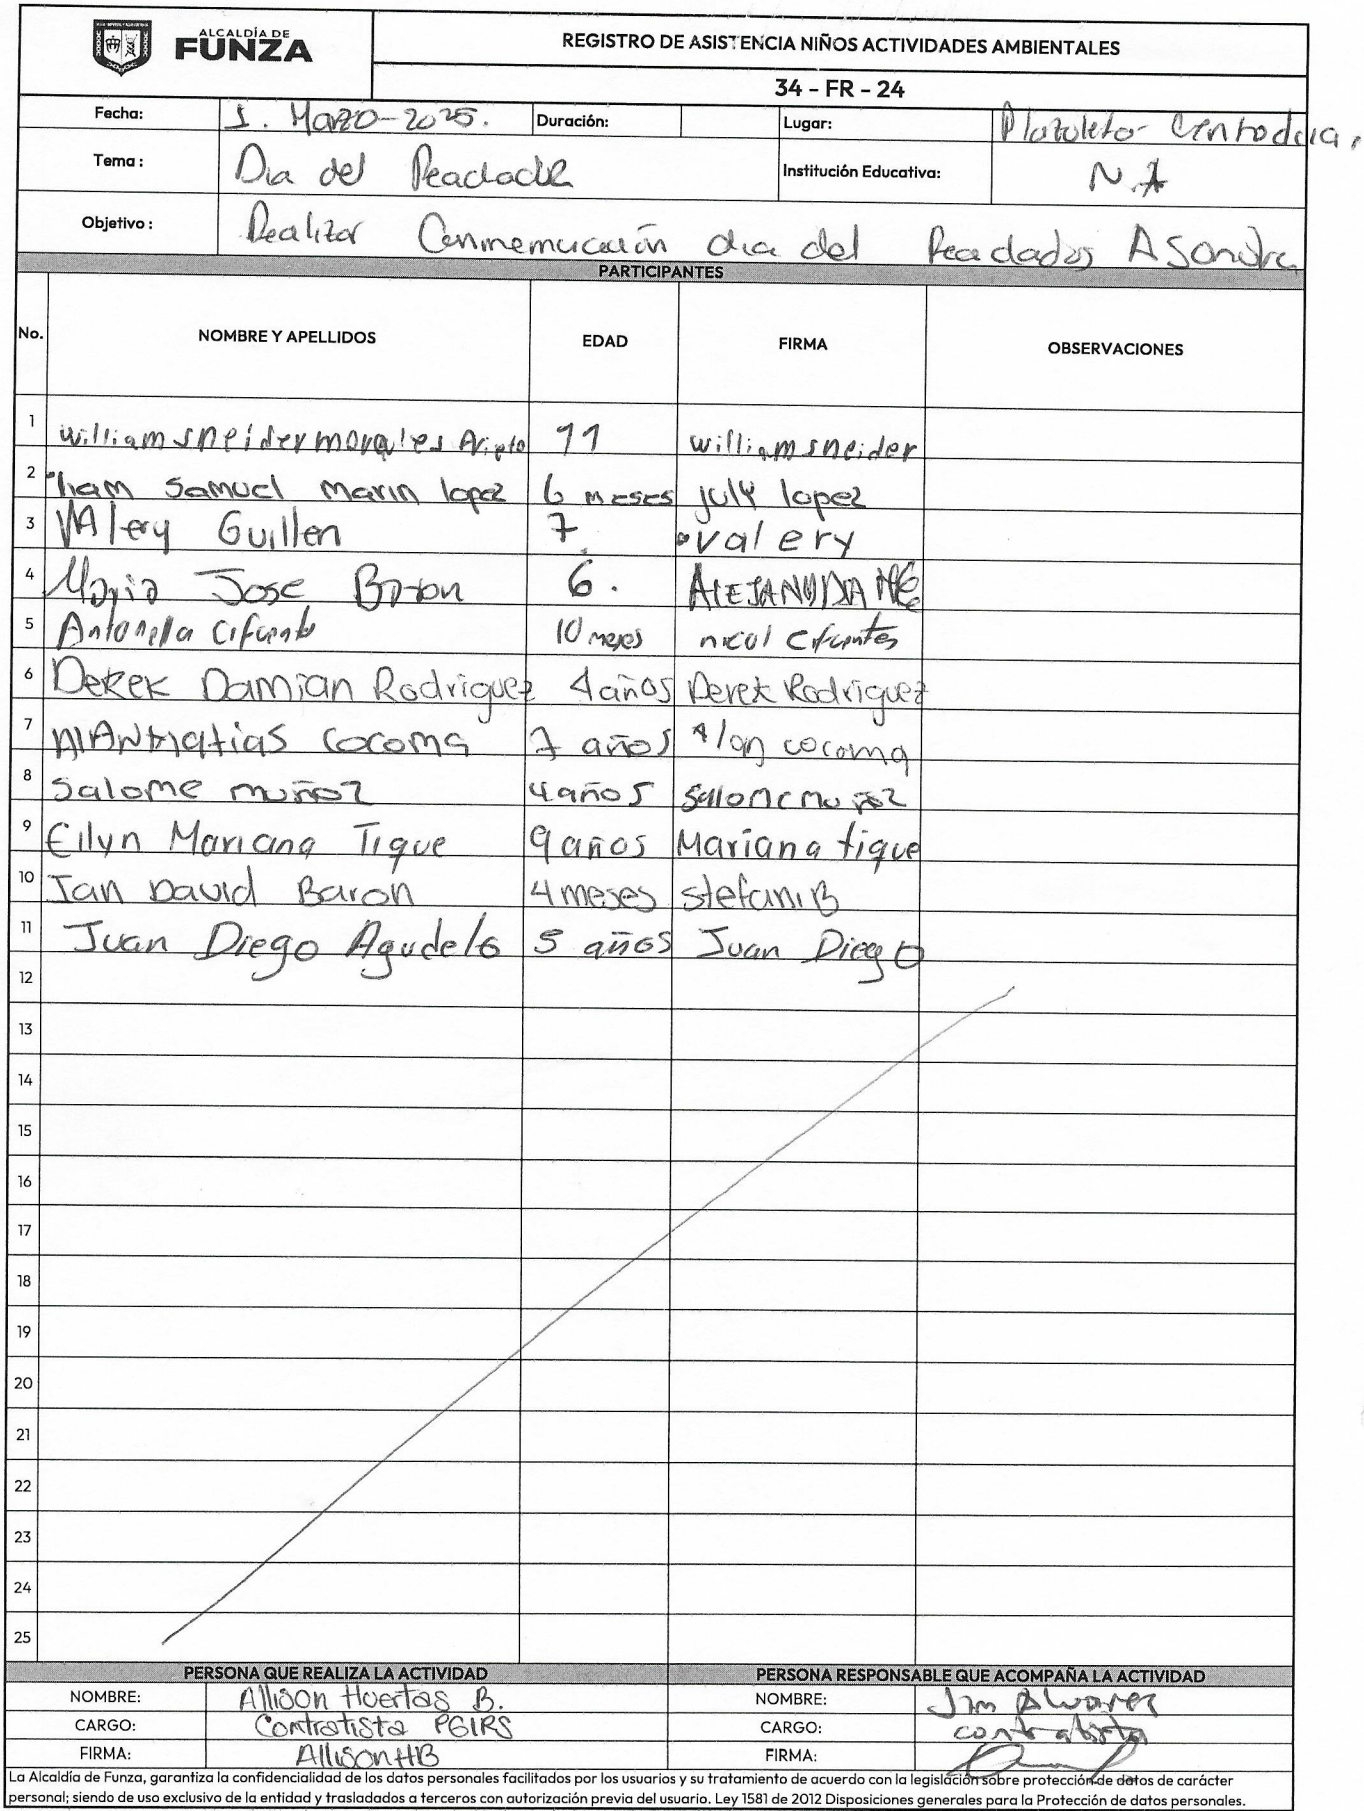 ALCALDÍA DE
FUNZA
REGISTRO DE ASISTENCIA NIÑOS ACTIVIDADES AMBIENTALES
34 - FR - 24
Fecha: 1. Marzo-2025. Duración: Lugar: Plazoleta
Tema: Dia del Institución Educativa: N.A
Objetivo: Realizar dia del
PARTICIPANTES
No. NOMBRE Y APELLIDOS EDAD FIRMA OBSERVACIONES
1 william sneider morales 11 william sneider
2 liam samuel marin lopez 6 meses july lopez
3 VAlery Guillen 7 valery
4 Maria Jose Baron 6.
5 Antonella Cifuentes 10 meses nicol cifuentes
6 Derek Damian Rodriguez 4 años Derek Rodriguez
7 AlAN Matias cocoma 7 años Alan cocoma
8 Salome muñoz 4 años salome muñoz
9 Eilyn Mariana Tique 9 años Mariana tique
10 Ian David Baron 4 meses stefani B
11 Juan Diego Agudelo 5 años Juan Diego
12
13
14
15
16
17
18
19
20
21
22
23
24
25
PERSONA QUE REALIZA LA ACTIVIDAD PERSONA RESPONSABLE QUE ACOMPAÑA LA ACTIVIDAD
NOMBRE: Allison Huertas B. NOMBRE: Alvarez
CARGO: Contratista PGIRS CARGO: contratista
FIRMA: Allison HB FIRMA:
La Alcaldía de Funza, garantiza la confidencialidad de los datos personales facilitados por los usuarios y su tratamiento de acuerdo con la legislación sobre protección de datos de carácter
personal; siendo de uso exclusivo de la entidad y trasladados a terceros con autorización previa del usuario. Ley 1581 de 2012 Disposiciones generales para la Protección de datos personales.